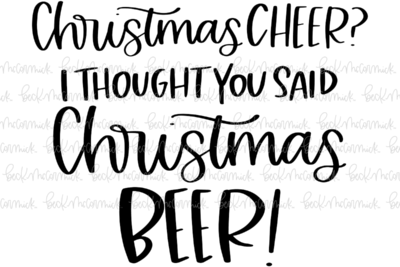 Christmas CHEER?
I THOUGHT YOU SAID
Christmas
BEER!